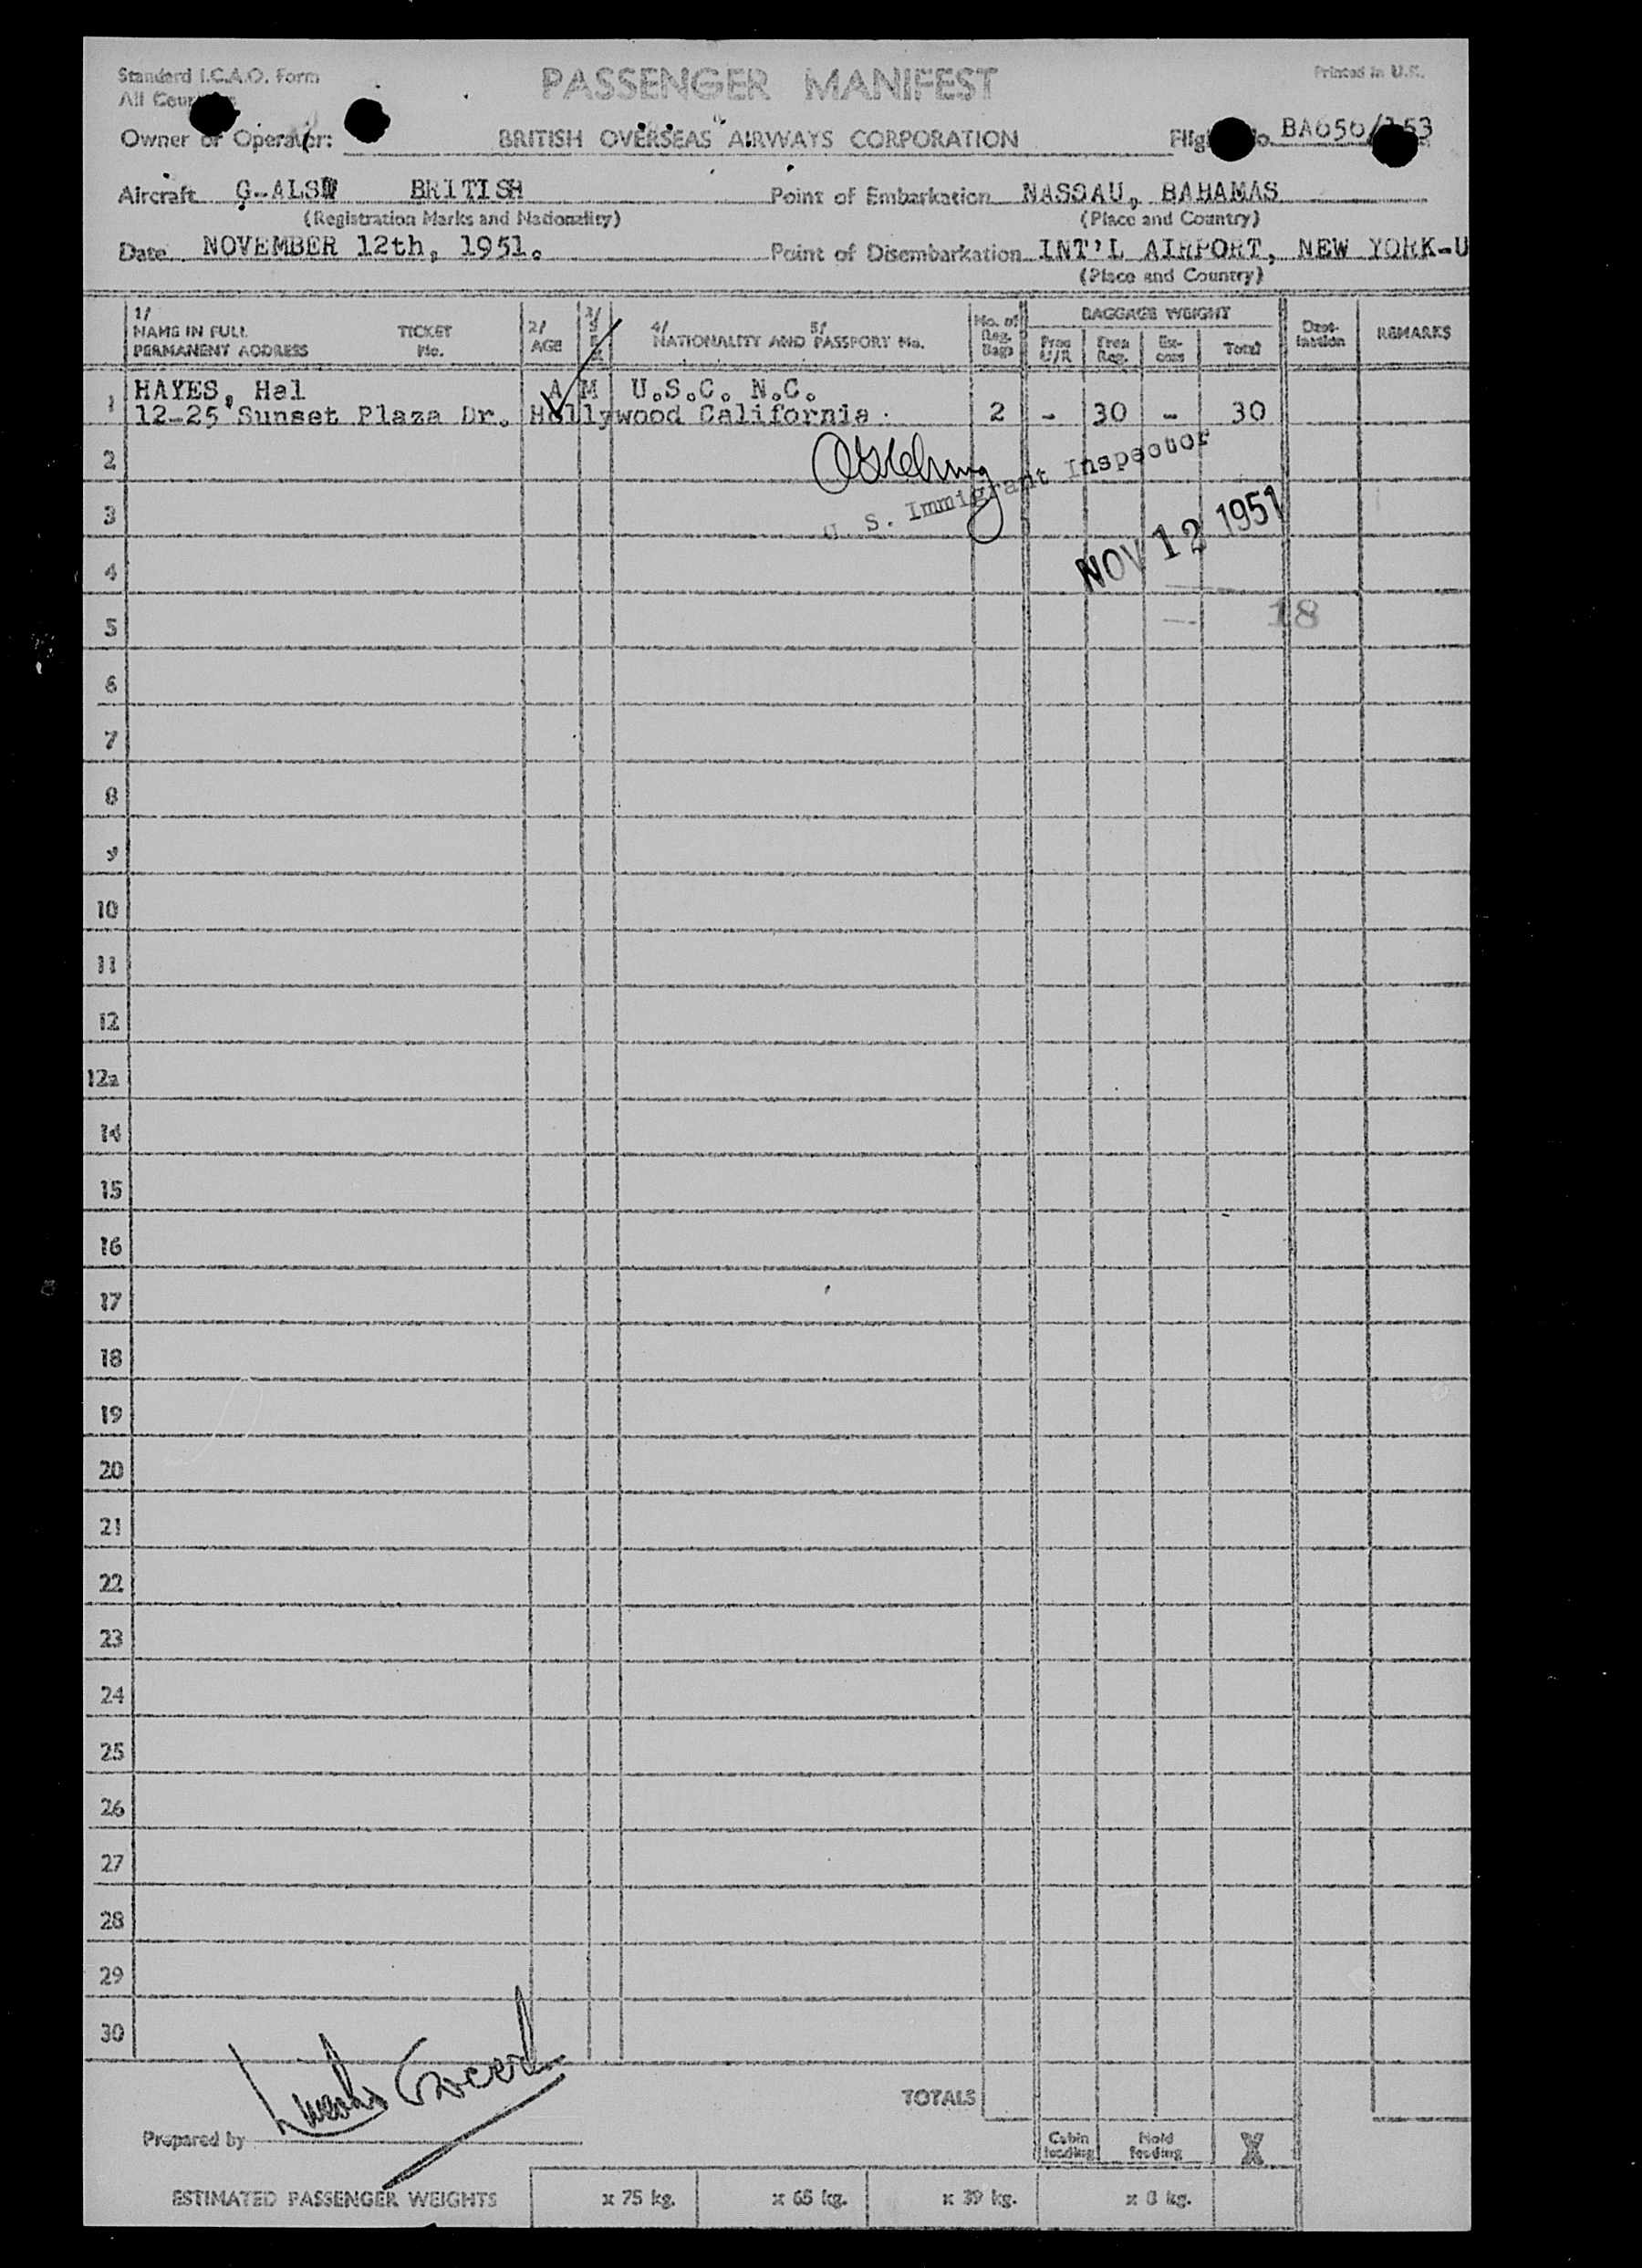 Standard I.C.A.O. Form
PASSENGER MANIFEST
Printed in U.K.
All
Owner or Operator: BRITISH OVERSEAS AIRWAYS CORPORATION
BA656/
Aircraft G-ALSW BRITISH Point of Embarkation NASSAU, BAHAMAS
(Registration Marks and Nationality) (Place and Country)
Date NOVEMBER 12th, 1951. Point of Disembarkation INT'L AIRPORT, NEW YORK-U
(Place and Country)
1/ NAME IN FULL PERMANENT ADDRESS TICKET No. 2/ AGE 3/ SEX 4/ NATIONALITY AND 5/ PASSPORT No. No. of Reg. Bags BAGGAGE WEIGHT Free U/R Free Reg. Ex-cess Total Dest-ination REMARKS
1 HAYES, Hal A M U.S.C. N.C.
12-25 Sunset Plaza Dr. Hollywood California. 2 - 30 - 30
2
U. S. Immigrant Inspector
3
NOV 12 1951
4
5 18
6
7
8
9
10
11
12
12a
14
15
16
17
18
19
20
21
22
23
24
25
26
27
28
29
30
TOTALS
Prepared by
Cabin loading Hold loading X
ESTIMATED PASSENGER WEIGHTS x 75 kg. x 65 kg. x 39 kg. x 8 kg.